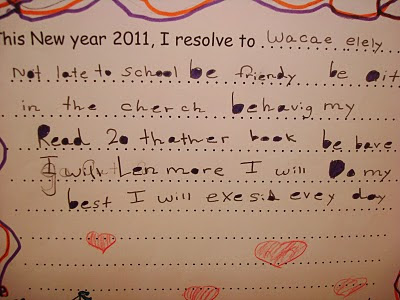 This New year 2011, I resolve to wacae elely
Not late to school be friendy be oit
in the cherch behavig my
Read 20 thather book be bave
I will Len more I will Do my
best I will exesis evey day